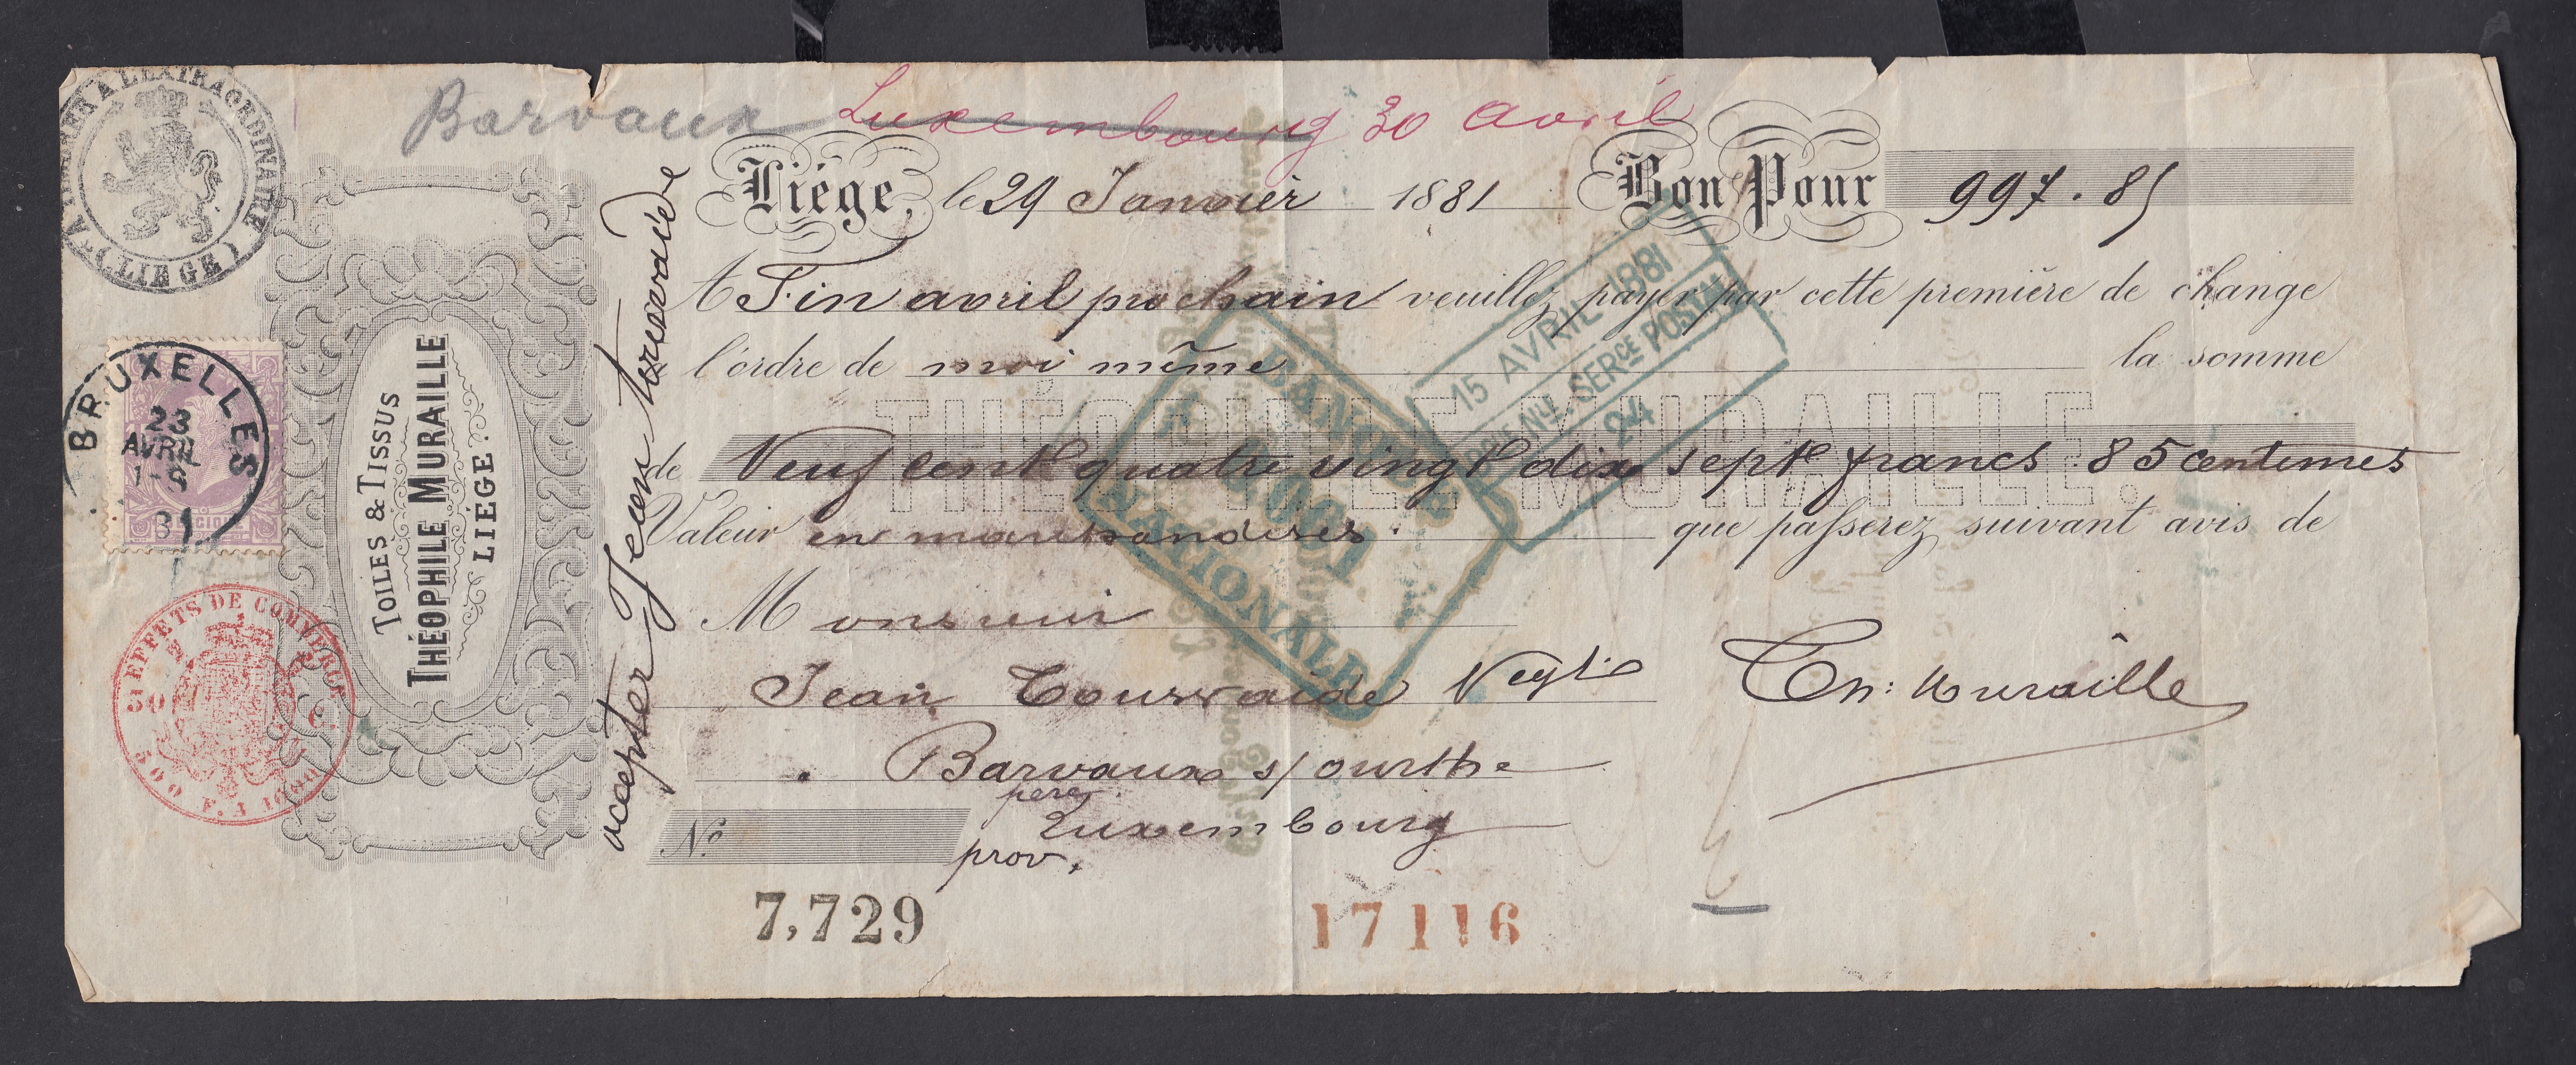 Barvaux Luxembourg 30 avril
Liége, le 29 Janvier 1881 Bon Pour 997.85
A Fin avril prochain veuillez payer par cette première de change
l'ordre de moi même la somme
de Neuf cent quatre vingt dix sept francs 85 centimes
Valeur en marchandises que passerez suivant avis de
Monsieur
Jean Tourvaide Negt
Th: Muraille
Barvaux s/ourthe
Luxembourg
prov.
No
7,729
17116
accepter Jean
TOILES & TISSUS
THÉOPHILE MURAILLE
LIÉGE
THÉOPHILE MURAILLE.
ATELIER A L'EXTRAORDINAIRE
(LIEGE)
BRUXELLES
23
AVRIL
1-2
81
BELGIQUE
EFFETS DE COMMERCE
50 C.
BANQUE
NATIONALE
15 AVRIL 1881
SERCE POSTAL
24